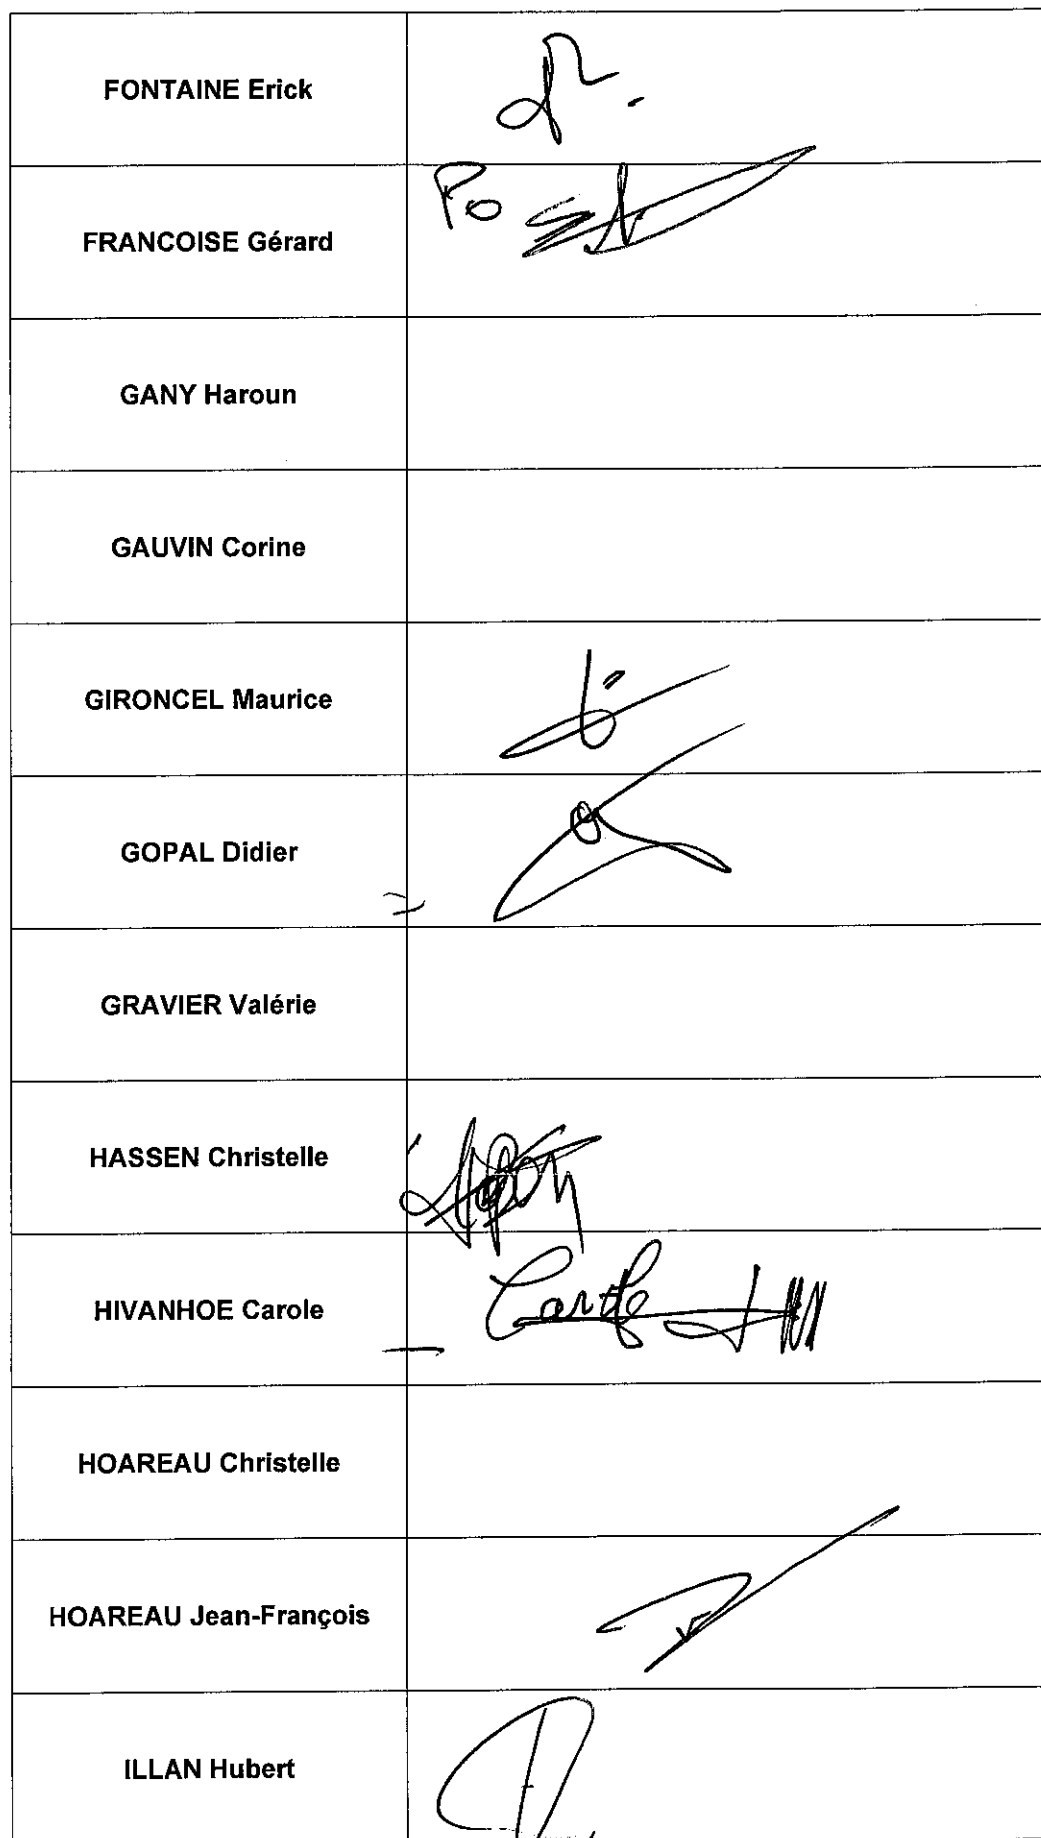 FONTAINE Erick
FRANCOISE Gérard
Po
GANY Haroun
GAUVIN Corine
GIRONCEL Maurice
GOPAL Didier
GRAVIER Valérie
HASSEN Christelle
HIVANHOE Carole
Carole
HOAREAU Christelle
HOAREAU Jean-François
ILLAN Hubert